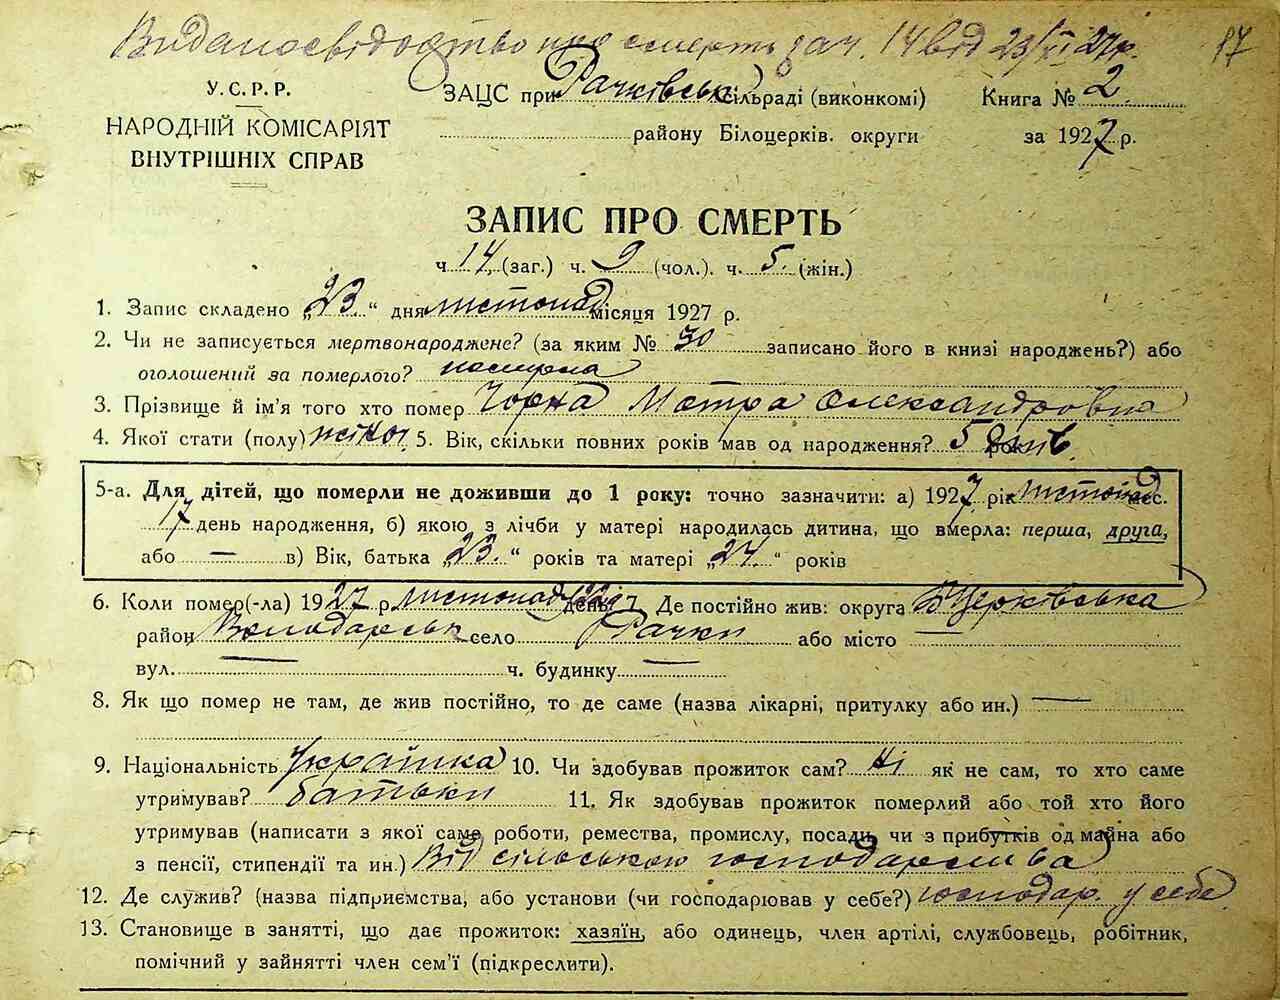 Видано свідоцтво про смерть за ч. 14 від 23/XI 27 р. 17
У.С.Р.Р. ЗАЦС при Рачківській сільраді (виконкомі) Книга № 2
НАРОДНІЙ КОМІСАРІЯТ району Білоцерків. округи за 1927 р.
ВНУТРІШНІХ СПРАВ
ЗАПИС ПРО СМЕРТЬ
ч 14 (заг.) ч. 9 (чол.). ч. 5 (жін.)
1. Запис складено „23“ дня листопад місяця 1927 р.
2. Чи не записується мертвонароджене? (за яким № 30 записано його в книзі народжень?) або
оголошений за померлого? померла
3. Прізвище й ім'я того хто помер Чорна Мотра Олександровна
4. Якої стати (полу) жіноч. 5. Вік, скільки повних років мав од народження? 5 днів
5-а. Для дітей, що померли не доживши до 1 року: точно зазначити: а) 1927 рік листопад міс.
17 день народження, б) якою з лічби у матері народилась дитина, що вмерла: перша, друга,
або — в) Вік, батька „23.“ років та матері „27.“ років
6. Коли помер(-ла) 1927 р. листопад 22 день 7. Де постійно жив: округа БЦерківська
район Володарськ село Рачки або місто —
вул. — ч. будинку —
8. Як що помер не там, де жив постійно, то де саме (назва лікарні, притулку або ин.) —
9. Національність Українка 10. Чи здобував прожиток сам? Ні як не сам, то хто саме
утримував? батьки 11. Як здобував прожиток померлий або той хто його
утримував (написати з якої саме роботи, ремества, промислу, посади, чи з прибутків од майна або
з пенсії, стипендії та ин.) Від сільського господарства
12. Де служив? (назва підприємства, або установи (чи господарював у себе?) господар. у себе
13. Становище в занятті, що дає прожиток: хазяїн, або одинець, член артілі, службовець, робітник,
помічний у зайнятті член сем'ї (підкреслити).